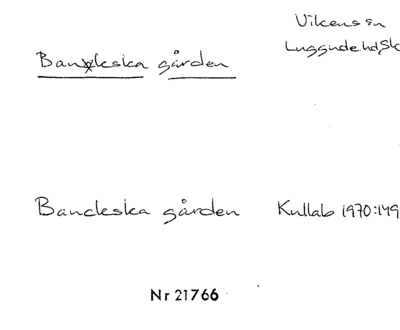 Vikens sn
Luggude hd, Sk
Banckska gården
Banckska gården Kullab 1970:149
Nr 21766